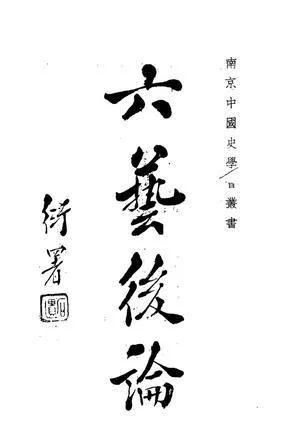 南京中國史學叢書
六藝後論
衍署